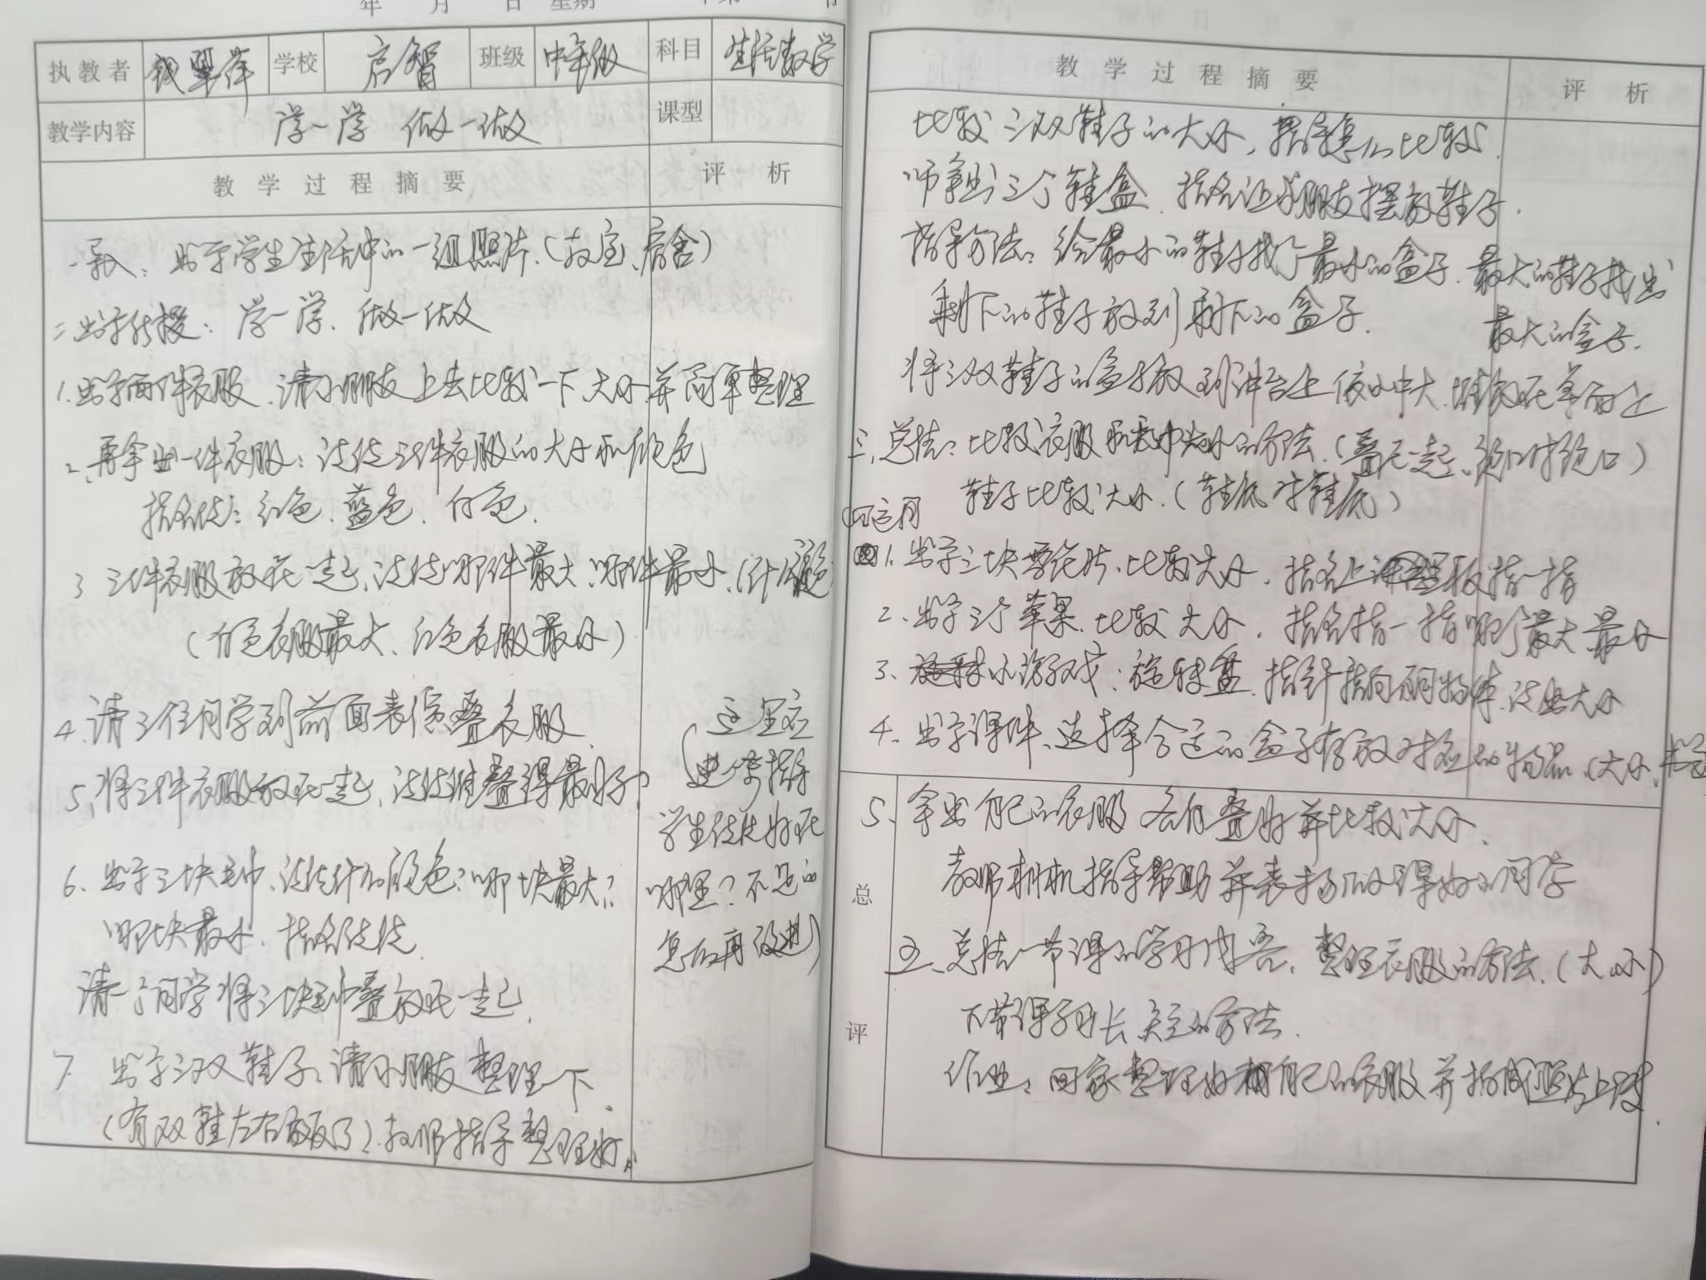 年 月 日 星期
执教者 学校 启智 班级 中年级 科目 生活数学
教学内容 学一学 做一做 课型
教学过程摘要 评析
一导入：出示学生生活中的一组照片.(教室、宿舍)
二出示课题：学一学、做一做
1.出示两件衣服、请小朋友上去比较一下大小并简单整理
2.再拿出一件衣服：说说三件衣服的大小和颜色
指名说：红色、蓝色、白色.
3 三件衣服放在一起,说说哪件最大,哪件最小.(什么颜色)
(白色衣服最大、红色衣服最小)
4.请三位同学到前面来 叠衣服.
5.将三件衣服放在一起,说说谁叠得最好?
6.出示三块毛巾,说说什么颜色?哪块最大?
哪块最小.指名说说
请一个同学将三块毛巾叠放在一起.
7 出示三双鞋子、请小朋友整理一下.
(有双鞋左右放反了).教师指导整理好.
(这里应
进一步指导
学生说说好在
哪里?不足的
怎么再改进)
教学过程摘要 评析
比较三双鞋子的大小,指导怎么比较.
师拿出三个鞋盒.指名让小朋友摆放鞋子.
指导方法：给最小的鞋子找个最小的盒子.最大的鞋子找出
最大的盒子.
剩下的鞋子放到剩下的盒子.
将三双鞋子的盒子放到讲台上依小中大.堆放在
三、总结：比较衣服和毛巾大小的方法.(叠在一起、领口对领口)
鞋子比较大小.(鞋底对鞋底)
四运用
1.出示三块雪花片、比较大小.指名上 板指一指
2、出示三个苹果.比较大小.指名指一指哪个最大最小
3、小游戏：旋转盘.指针指向不同物体.说出大小
4、出示课件、选择合适的盒子存放对应的物品.(大小.
5、拿出自己的衣服各自叠好并比较大小.
教师相机指导帮助并表扬做得好的同学
总评
五、总结一节课的学习内容.整理衣服的方法.(大小)
下节课
作业：回家整理好自己的衣服并拍成照片上传.